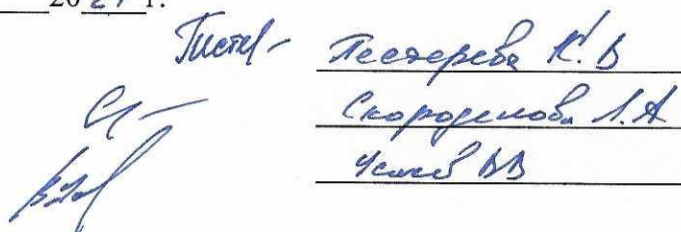 20 21 г.
Пестерева К.В
Скороделова Л.А
Усков ВВ